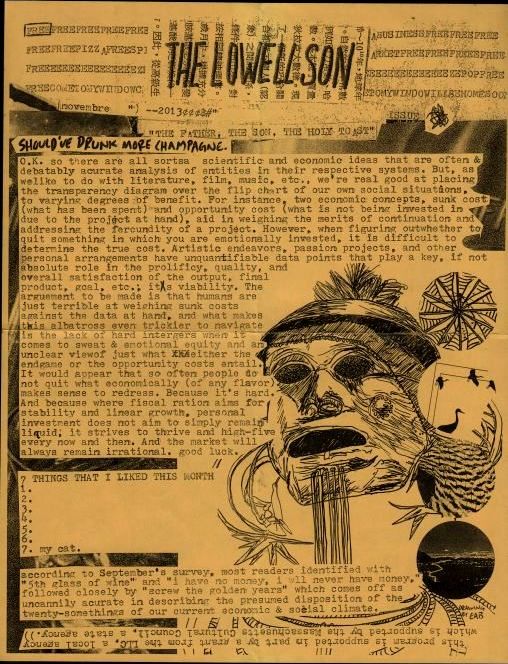 FREEFREEFREEFREEFRE
FREEFREEPIZZAFREESP
FREEEEEEEEEEEEEEEEEEEEEZI
THE LOWELL SON
novembre
--2013
ISSUE
"THE FATHER, THE SON, THE HOLY TOAST"
SHOULD'VE DRUNK MORE CHAMPAGNE.
O.K. so there are all sortsa scientific and economic ideas that are often &
debatably acurate analysis of entities in their respective systems. But, as
welike to do with literature, film, music, etc., we're real good at placing
the transparency diagram over the flip chart of our own social situations,
to varying degrees of benefit. For instance, two economic concepts, sunk cost
(what has been spent) and opportunity cost (what is not being invested in
due to the project at hand), aid in weighing the merits of continuation and
addressing the fercundity of a project. However, when figuring outwhether to
quit something in which you are emotionally invested, it is difficult to
determine the true cost. Artistic endeavors, passion projects, and other
personal arrangements have unquantifiable data points that play a key, if not
absolute role in the prolificy, quality, and
overall satisfaction of the output, final
product, goal, etc.; it's viability. The
arguement to be made is that humans are
just terrible at weighing sunk costs
against the data at hand, and what makes
this albatross even trickier to navigate
is the lack of hard intergers when it
comes to sweat & emotional equity and an
unclear viewof just what XXXeither the
endgame or the opportunity costs entail.
It would appear that so often people do
not quit what economically (of any flavor)
makes sense to redress. Because it's hard.
And because where fiscal ration aims for
stability and linear growth, personal
investment does not aim to simply remain
liquid; it strives to thrive and high-five
every now and then. And the market will
always remain irrational. good luck.
7 THINGS THAT I LIKED THIS MONTH
1.
2.
3.
4.
5.
6.
7. my cat.
according to September's survey, most readers identified with
"5th glass of wine" and "i have no money, i will never have money,"
followed closely by "screw the golden years" which comes off as
uncannily acurate in describing the presumed disposition of the
twenty-somethings of our current economic & social climate.
DRAWING BY EAB
this program is supported in part by a grant from the LLC, a local agency
which is supported by the Massachusetts Cultural Council, a state agency.))